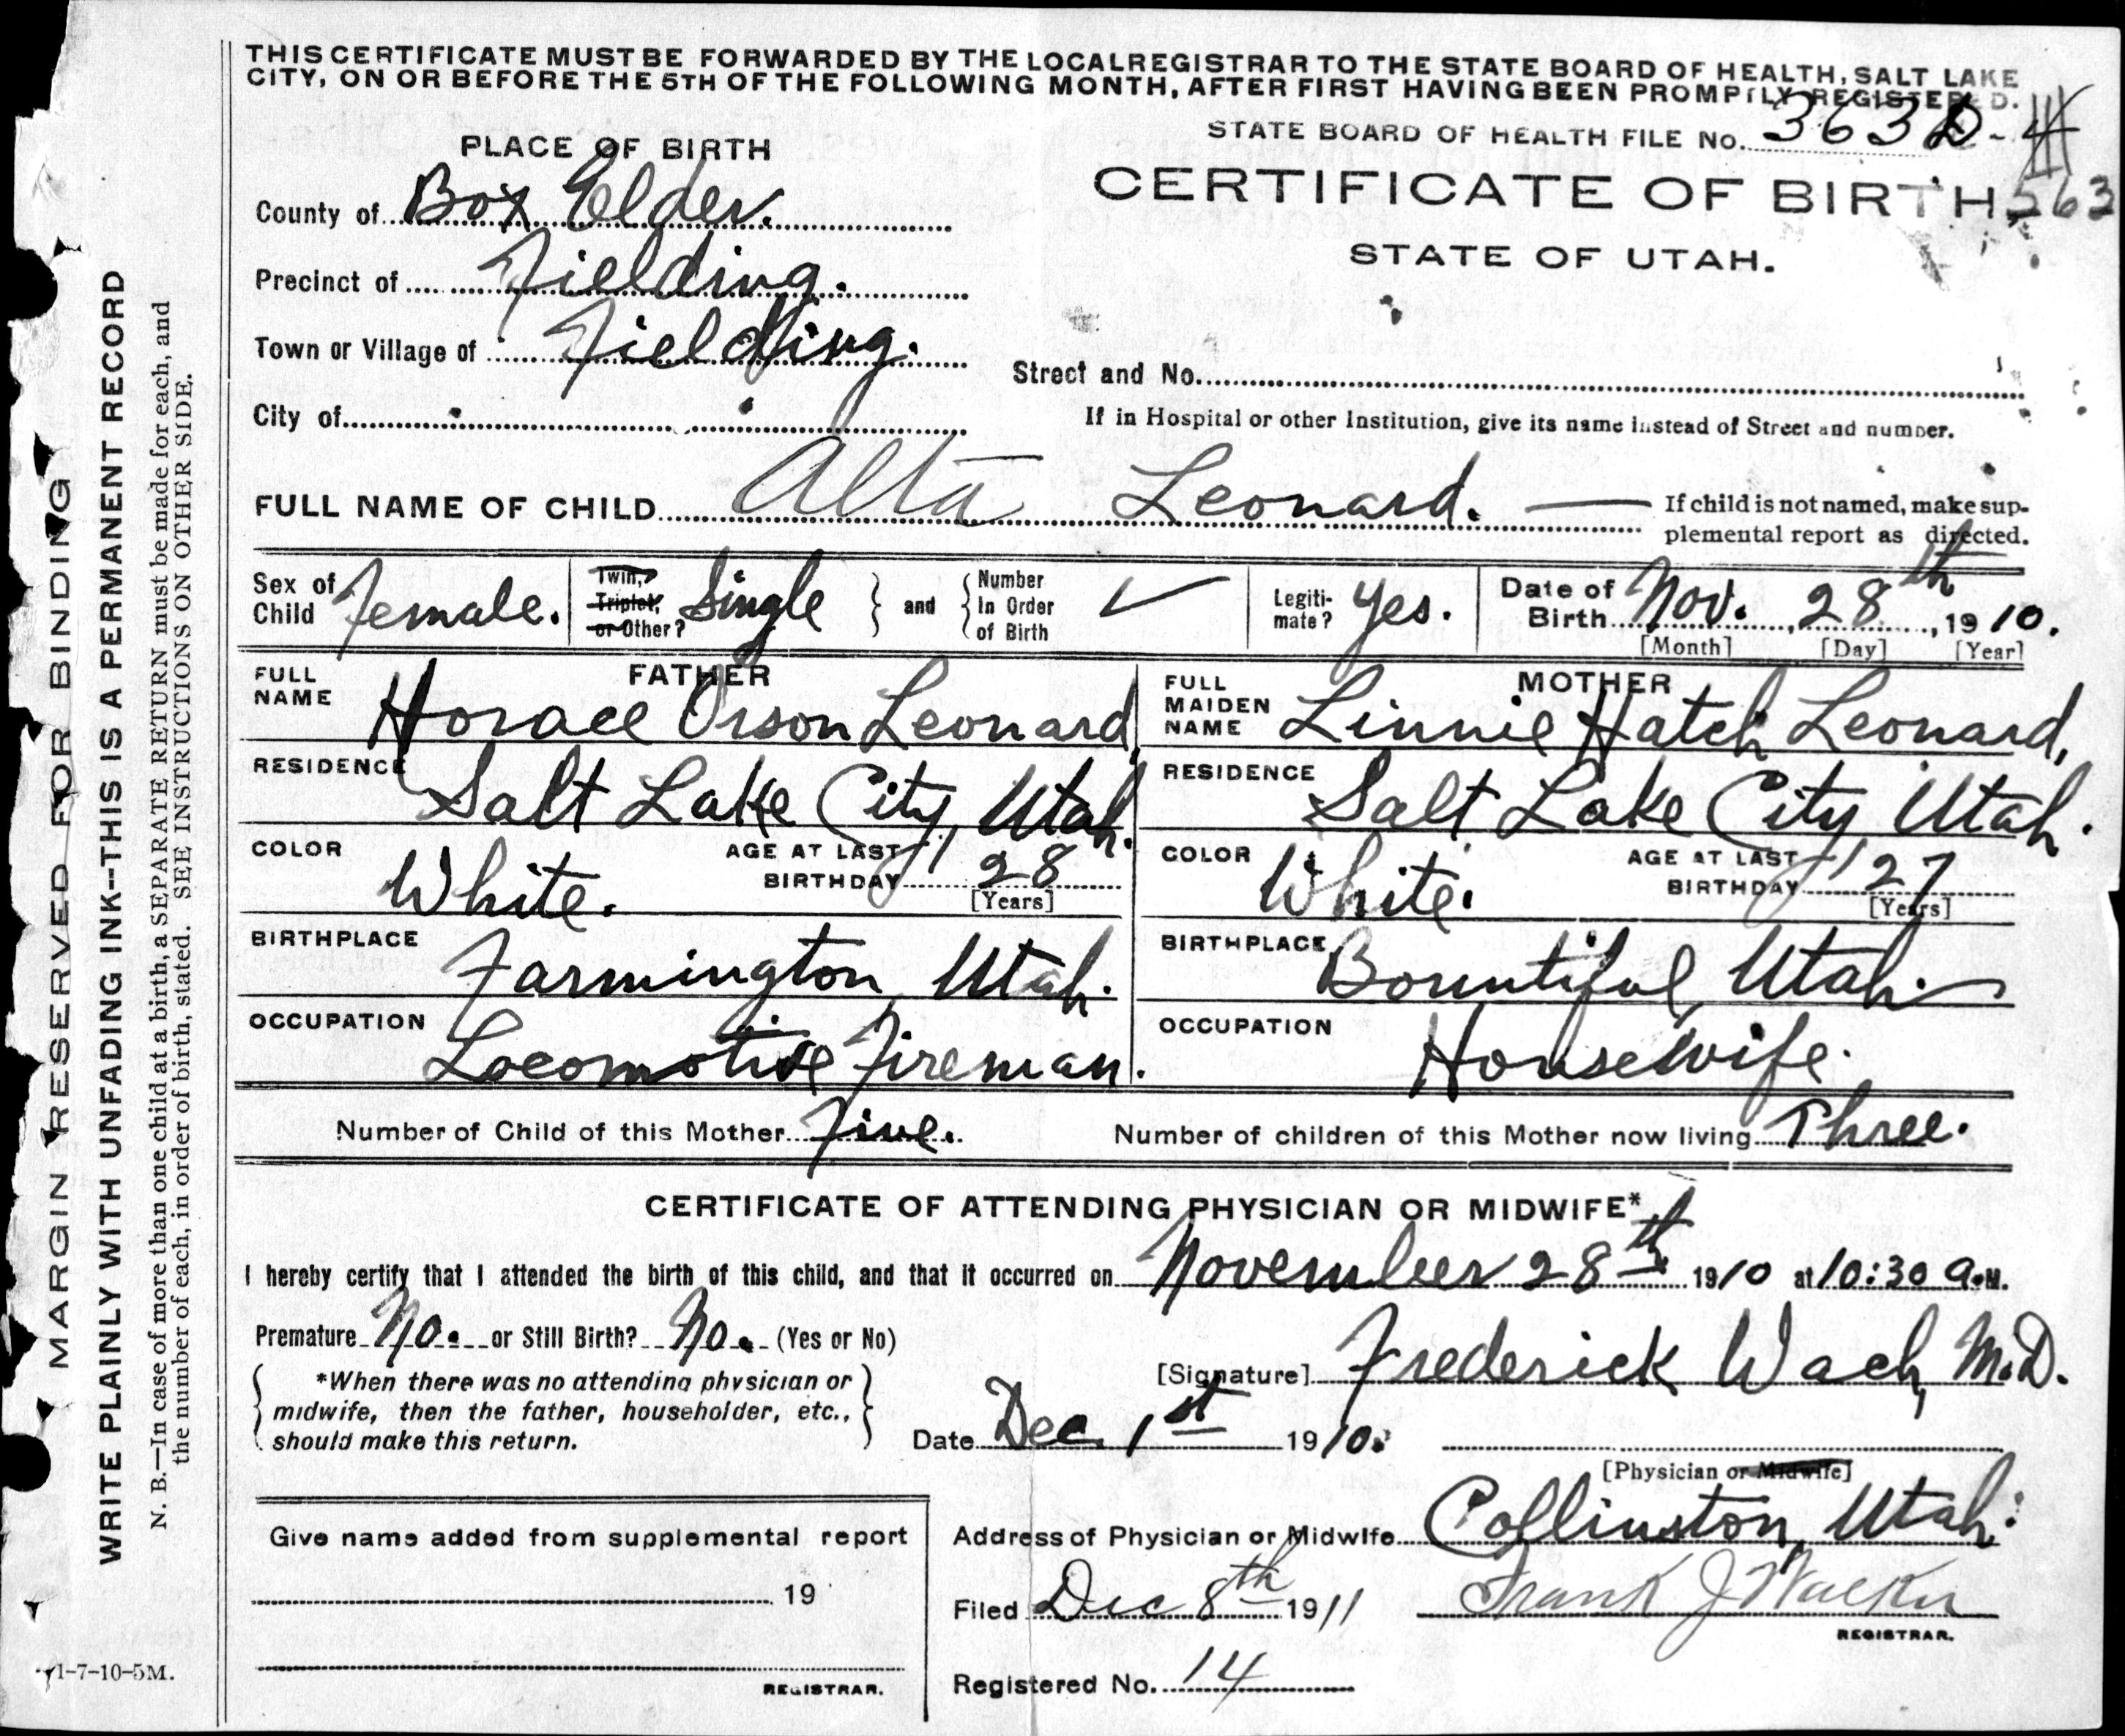 THIS CERTIFICATE MUST BE FORWARDED BY THE LOCAL REGISTRAR TO THE STATE BOARD OF HEALTH, SALT LAKE
CITY, ON OR BEFORE THE 5TH OF THE FOLLOWING MONTH, AFTER FIRST HAVING BEEN PROMPTLY REGISTERED.
STATE BOARD OF HEALTH FILE No. 363
PLACE OF BIRTH
CERTIFICATE OF BIRTH
STATE OF UTAH.
County of Box Elder.
Precinct of Fielding.
Town or Village of Fielding.
Street and No.
City of
If in Hospital or other Institution, give its name instead of Street and number.
FULL NAME OF CHILD Alta Leonard.
If child is not named, make sup-
plemental report as directed.
Sex of Child Female.
Twin, Triplet, or Other? Single and Number In Order of Birth
Legiti-mate? Yes.
Date of Birth Nov. 28th, 1910.
[Month] [Day] [Year]
FATHER
FULL NAME Horace Orson Leonard
RESIDENCE Salt Lake City, Utah.
COLOR White. AGE AT LAST BIRTHDAY 28
[Years]
BIRTHPLACE Farmington, Utah.
OCCUPATION Locomotive Fireman.
MOTHER
FULL MAIDEN NAME Linnie Hatch Leonard,
RESIDENCE Salt Lake City, Utah.
COLOR White. AGE AT LAST BIRTHDAY 27
[Years]
BIRTHPLACE Bountiful, Utah.
OCCUPATION Housewife.
Number of Child of this Mother Five. Number of children of this Mother now living Three.
CERTIFICATE OF ATTENDING PHYSICIAN OR MIDWIFE*
I hereby certify that I attended the birth of this child, and that it occurred on November 28th 1910 at 10:30 A.M.
Premature No. or Still Birth? No. (Yes or No)
[Signature] Frederick Wach, M.D.
*When there was no attending physician or
midwife, then the father, householder, etc.,
should make this return.
Date Dec. 1st 1910.
[Physician or Midwife]
Give name added from supplemental report
19
REGISTRAR.
Address of Physician or Midwife Collinston, Utah.
Filed Dec 8th 1911 Frank J Walker
REGISTRAR.
Registered No. 14
1-7-10-5M.
MARGIN RESERVED FOR BINDING
WRITE PLAINLY WITH UNFADING INK--THIS IS A PERMANENT RECORD
N. B.—In case of more than one child at a birth, a SEPARATE RETURN must be made for each, and
the number of each, in order of birth, stated. SEE INSTRUCTIONS ON OTHER SIDE.